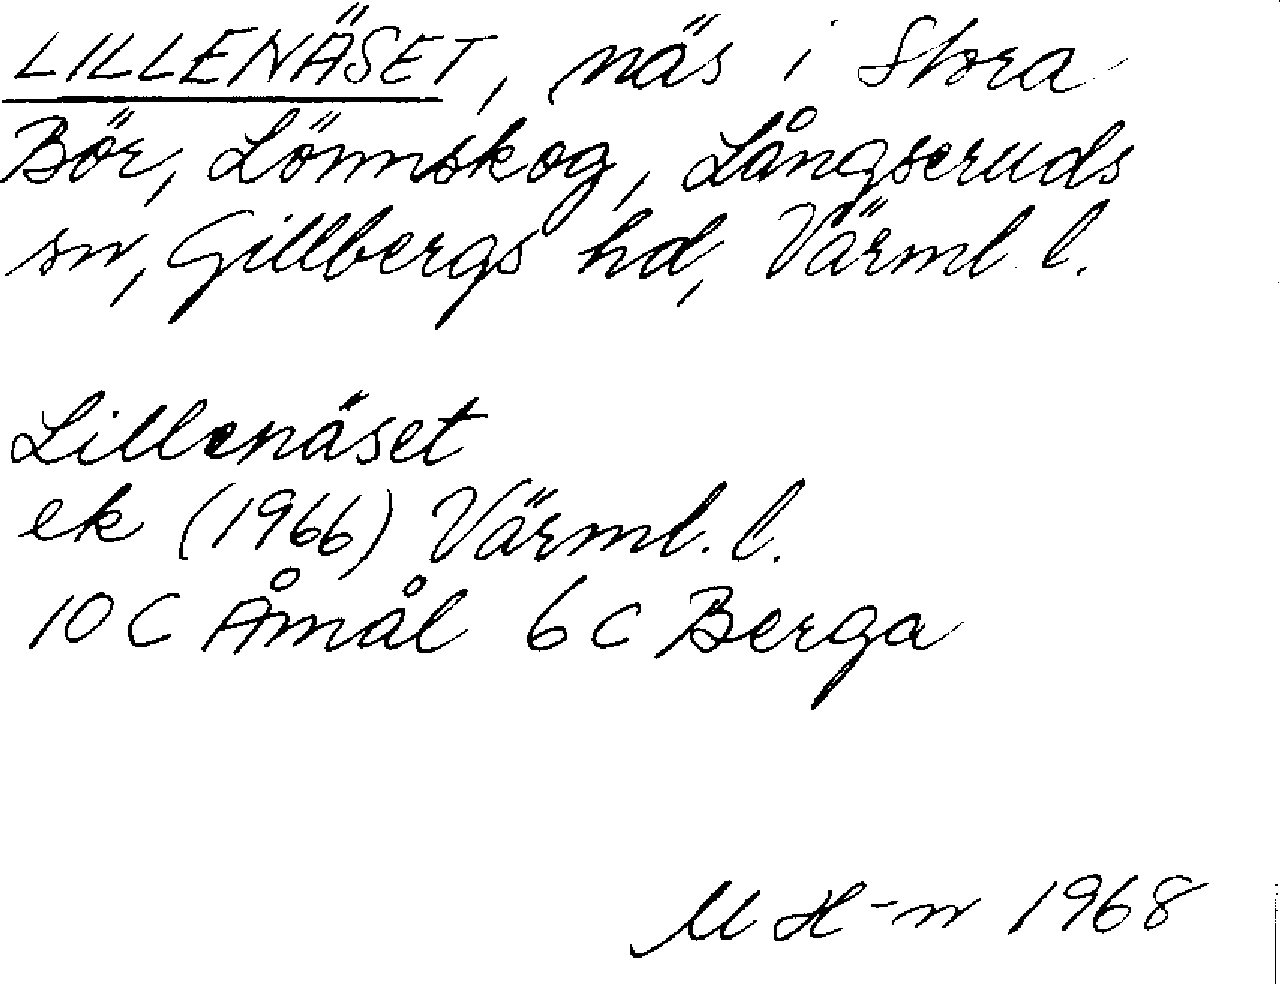 LILLENÄSET, näs i Stora
Bör, Lönnskog, Långseruds
sn, Gillbergs hd, Värml. l.
Lillenäset
ek (1966) Värml. l.
10 C Åmål 6 c Berga
M H-n 1968